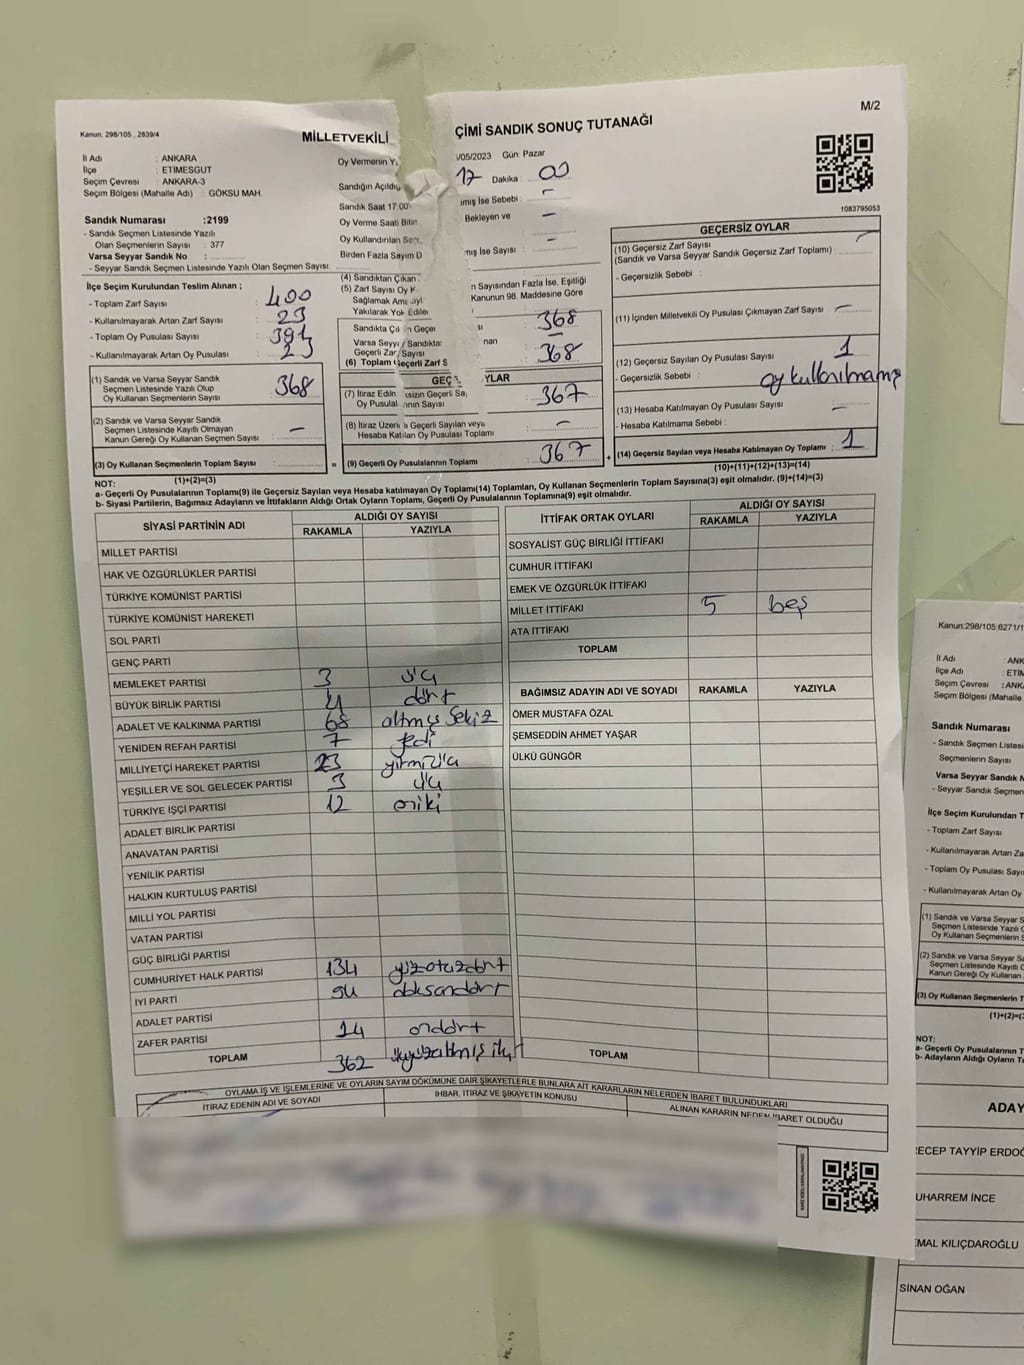 Kanun: 298/105 , 2839/4
MİLLETVEKİLİ
ÇİMİ SANDIK SONUÇ TUTANAĞI
M/2
İl Adı : ANKARA
İlçe : ETİMESGUT
Seçim Çevresi : ANKARA-3
Seçim Bölgesi (Mahalle Adı) : GÖKSU MAH.
Sandık Numarası :2199
- Sandık Seçmen Listesinde Yazılı
Olan Seçmenlerin Sayısı : 377
Varsa Seyyar Sandık No :
- Seyyar Sandık Seçmen Listesinde Yazılı Olan Seçmen Sayısı:
İlçe Seçim Kurulundan Teslim Alınan ;
- Toplam Zarf Sayısı : 400
- Kullanılmayarak Artan Zarf Sayısı : 23
- Toplam Oy Pusulası Sayısı :
- Kullanılmayarak Artan Oy Pusulası : 23
(1) Sandık ve Varsa Seyyar Sandık
Seçmen Listesinde Yazılı Olup
Oy Kullanan Seçmenlerin Sayısı : 368
(2) Sandık ve Varsa Seyyar Sandık
Seçmen Listesinde Kayıtlı Olmayan
Kanun Gereği Oy Kullanan Seçmen Sayısı : -
(3) Oy Kullanan Seçmenlerin Toplam Sayısı :
(1)+(2)=(3)
Oy Vermenin
/05/2023 Gün: Pazar
Sandığın Açıldığı
17 Dakika : 00
Sandık Saat 17:00
mış İse Sebebi : -
Oy Verme Saati Bitim
Bekleyen ve
-
Oy Kullandırılan Seç
Birden Fazla Sayım D
mış İse Sayısı : -
(4) Sandıktan Çıkan
(5) Zarf Sayısı Oy K
n Sayısından Fazla İse, Eşitliği
Sağlamak Am
Kanunun 98. Maddesine Göre
Yakılarak Yok Edilen
Sandıkta Çı n Geçer
sı : 368
Varsa Seyy / Sandıkta
nan : -
Geçerli Zar Sayısı
(6) Toplam Geçerli Zarf S
368
GEÇ YLAR
(7) İtiraz Edilm sizin Geçerli Sa
Oy Pusulal nın Sayısı : 367
(8) İtiraz Üzeri Geçerli Sayılan veya
Hesaba Katılan Oy Pusulası Toplamı : -
= (9) Geçerli Oy Pusulalarının Toplamı : 367 +
1083795053
GEÇERSİZ OYLAR
(10) Geçersiz Zarf Sayısı
(Sandık ve Varsa Seyyar Sandık Geçersiz Zarf Toplamı) : -
- Geçersizlik Sebebi :
(11) İçinden Milletvekili Oy Pusulası Çıkmayan Zarf Sayısı : -
(12) Geçersiz Sayılan Oy Pusulası Sayısı : 1
- Geçersizlik Sebebi : oy kullanılmamış
(13) Hesaba Katılmayan Oy Pusulası Sayısı : -
- Hesaba Katılmama Sebebi :
(14) Geçersiz Sayılan veya Hesaba Katılmayan Oy Toplamı : 1
(10)+(11)+(12)+(13)=(14)
NOT:
a- Geçerli Oy Pusulalarının Toplamı(9) ile Geçersiz Sayılan veya Hesaba katılmayan Oy Toplamı(14) Toplamları, Oy Kullanan Seçmenlerin Toplam Sayısına(3) eşit olmalıdır. (9)+(14)=(3)
b- Siyasi Partilerin, Bağımsız Adayların ve İttifakların Aldığı Ortak Oyların Toplamı, Geçerli Oy Pusulalarının Toplamına(9) eşit olmalıdır.
SİYASİ PARTİNİN ADI
ALDIĞI OY SAYISI
RAKAMLA YAZIYLA
MİLLET PARTİSİ
HAK VE ÖZGÜRLÜKLER PARTİSİ
TÜRKİYE KOMÜNİST PARTİSİ
TÜRKİYE KOMÜNİST HAREKETİ
SOL PARTİ
GENÇ PARTİ
MEMLEKET PARTİSİ 3 üç
BÜYÜK BİRLİK PARTİSİ 4 dört
ADALET VE KALKINMA PARTİSİ 68 altmış sekiz
YENİDEN REFAH PARTİSİ 7 yedi
MİLLİYETÇİ HAREKET PARTİSİ 23 yirmiüç
YEŞİLLER VE SOL GELECEK PARTİSİ 3 üç
TÜRKİYE İŞÇİ PARTİSİ 12 oniki
ADALET BİRLİK PARTİSİ
ANAVATAN PARTİSİ
YENİLİK PARTİSİ
HALKIN KURTULUŞ PARTİSİ
MİLLİ YOL PARTİSİ
VATAN PARTİSİ
GÜÇ BİRLİĞİ PARTİSİ
CUMHURİYET HALK PARTİSİ 134 yüzotuzdört
İYİ PARTİ 94 doksandört
ADALET PARTİSİ
ZAFER PARTİSİ 14 ondört
TOPLAM 362 üçyüzaltmışiki
İTTİFAK ORTAK OYLARI
ALDIĞI OY SAYISI
RAKAMLA YAZIYLA
SOSYALİST GÜÇ BİRLİĞİ İTTİFAKI
CUMHUR İTTİFAKI
EMEK VE ÖZGÜRLÜK İTTİFAKI
MİLLET İTTİFAKI 5 beş
ATA İTTİFAKI
TOPLAM
BAĞIMSIZ ADAYIN ADI VE SOYADI RAKAMLA YAZIYLA
ÖMER MUSTAFA ÖZAL
ŞEMSEDDİN AHMET YAŞAR
ÜLKÜ GÜNGÖR
TOPLAM
OYLAMA İŞ VE İŞLEMLERİNE VE OYLARIN SAYIM DÖKÜMÜNE DAİR ŞİKAYETLERLE BUNLARA AİT KARARLARIN NELERDEN İBARET BULUNDUKLARI
İTİRAZ EDENİN ADI VE SOYADI
İHBAR, İTİRAZ VE ŞİKAYETİN KONUSU
ALINAN KARARIN NEDEN İBARET OLDUĞU
Kanun:298/105,6271/1
İl Adı : ANK
İlçe Adı : ETİM
Seçim Çevresi : ANKA
Seçim Bölgesi (Mahalle
Sandık Numarası
- Sandık Seçmen Listesi
Seçmenlerin Sayısı
Varsa Seyyar Sandık N
- Seyyar Sandık Seçmen
İlçe Seçim Kurulundan T
- Toplam Zarf Sayısı
- Kullanılmayarak Artan Za
- Toplam Oy Pusulası Sayıs
- Kullanılmayarak Artan Oy
(1) Sandık ve Varsa Seyyar S
Seçmen Listesinde Yazılı O
Oy Kullanan Seçmenlerin S
(2) Sandık ve Varsa Seyyar Sa
Seçmen Listesinde Kayıtlı O
Kanun Gereği Oy Kullanan
(3) Oy Kullanan Seçmenlerin T
(1)+(2)=(
NOT:
a- Geçerli Oy Pusulalarının T
b- Adayların Aldığı Oyların T
ADAY
RECEP TAYYİP ERDOĞ
UHARREM İNCE
EMAL KILIÇDAROĞLU
SİNAN OĞAN